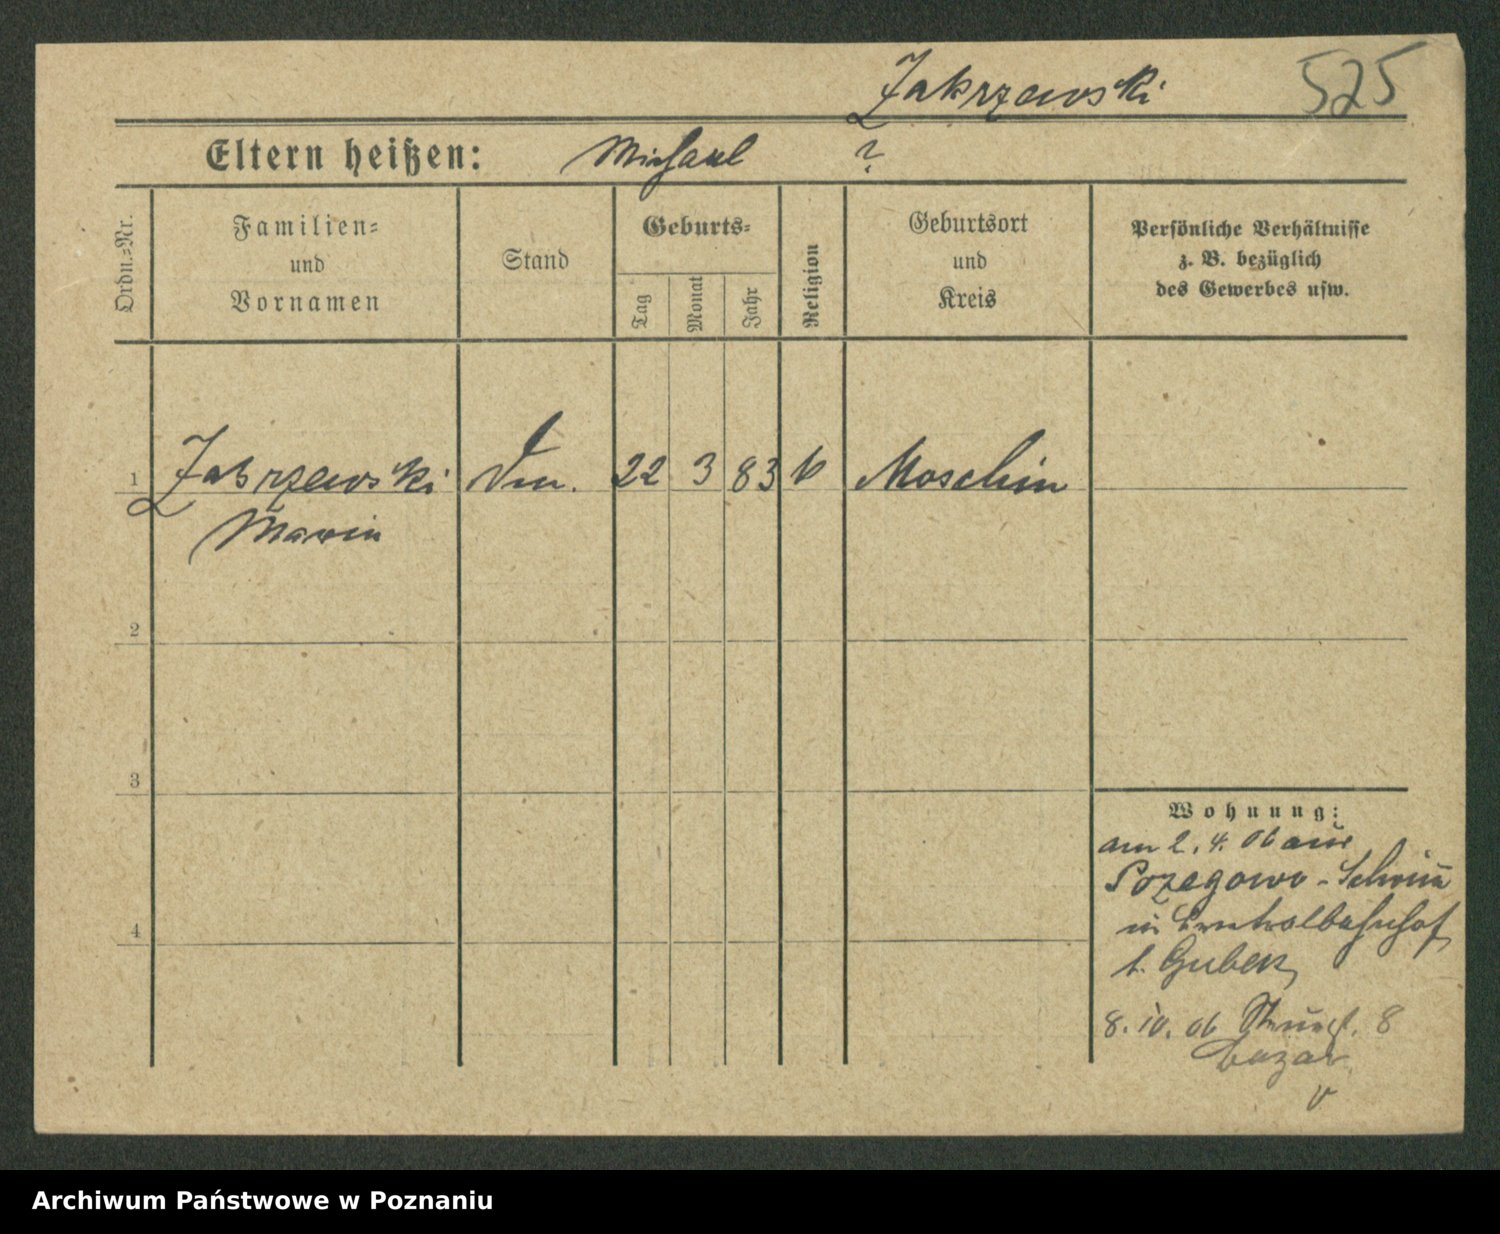 Zakrzewski 525
Eltern heißen: Michael ?
Ordn.-Nr.
Familien-
und
Vornamen
Stand
Geburts-
Tag
Monat
Jahr
Religion
Geburtsort
und
Kreis
Persönliche Verhältnisse
z. B. bezüglich
des Gewerbes usw.
1 Zakrzewski 22 3 83 k Moschin
2
3
4
Wohnung:
am 2. 4. 06 aus
Pozegowo - Schrim
in Centralbahnhof
b. Gubek
8. 10. 06 8
bazar
Archiwum Państwowe w Poznaniu